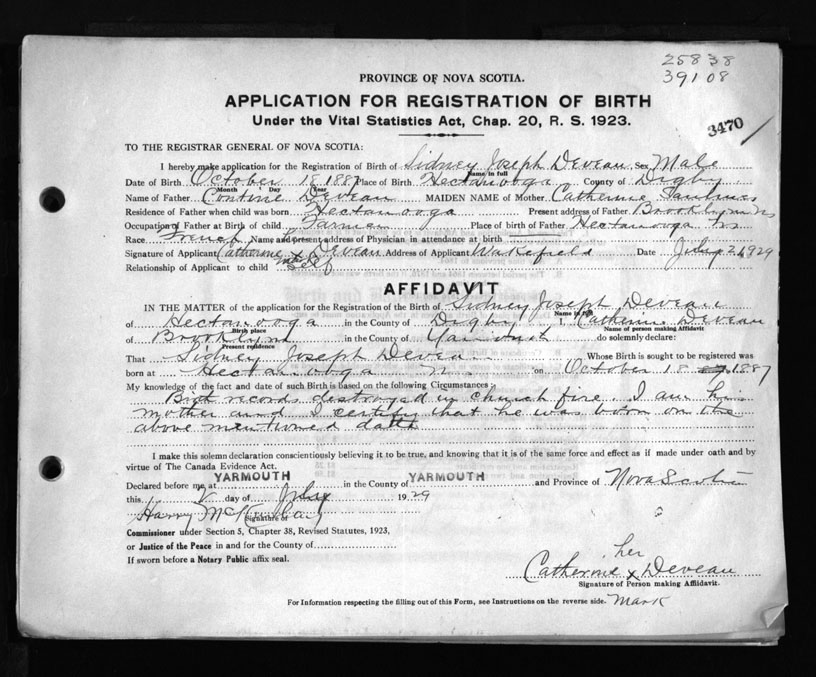 25838
39108
PROVINCE OF NOVA SCOTIA.
APPLICATION FOR REGISTRATION OF BIRTH
Under the Vital Statistics Act, Chap. 20, R. S. 1923.
3470
TO THE REGISTRAR GENERAL OF NOVA SCOTIA:
I hereby make application for the Registration of Birth of Sidney Joseph Deveau Sex Male
Name in full
Date of Birth October 18 1887 Place of Birth Hectanooga County of Digby
Month Day Year
Name of Father Deveau MAIDEN NAME of Mother Catherine
Residence of Father when child was born Hectanooga Present address of Father Brooklyn NS
Occupation of Father at Birth of child Farmer Place of Birth of Father Hectanooga NS
Race French Name and present address of Physician in attendance at birth
Signature of Applicant Catherine x Deveau Address of Applicant Wakefield Date July 2 1929
Relationship of Applicant to child Self
AFFIDAVIT
IN THE MATTER of the application for the Registration of the Birth of Sidney Joseph Deveau
Name in full
of Hectanooga in the County of Digby I, Catherine Deveau
Birth place Name of person making Affidavit
of Brooklyn in the County of Yarmouth do solemnly declare:
Present residence
That Sidney Joseph Deveau Whose Birth is sought to be registered was
born at Hectanooga on October 18 1887
My knowledge of the fact and date of such Birth is based on the following Circumstances:
Birth records destroyed in church fire. I am his
mother and I certify that he was born on the
above mentioned date
I make this solemn declaration conscientiously believing it to be true, and knowing that it is of the same force and effect as if made under oath and by
virtue of The Canada Evidence Act.
Declared before me at YARMOUTH in the County of YARMOUTH and Province of Nova Scotia
this day of July 1929
Harry
Signature of
Commissioner under Section 5, Chapter 38, Revised Statutes, 1923,
or Justice of the Peace in and for the County of
If sworn before a Notary Public affix seal.
her
Catherine x Deveau
Signature of Person making Affidavit.
mark
For Information respecting the filling out of this Form, see Instructions on the reverse side.